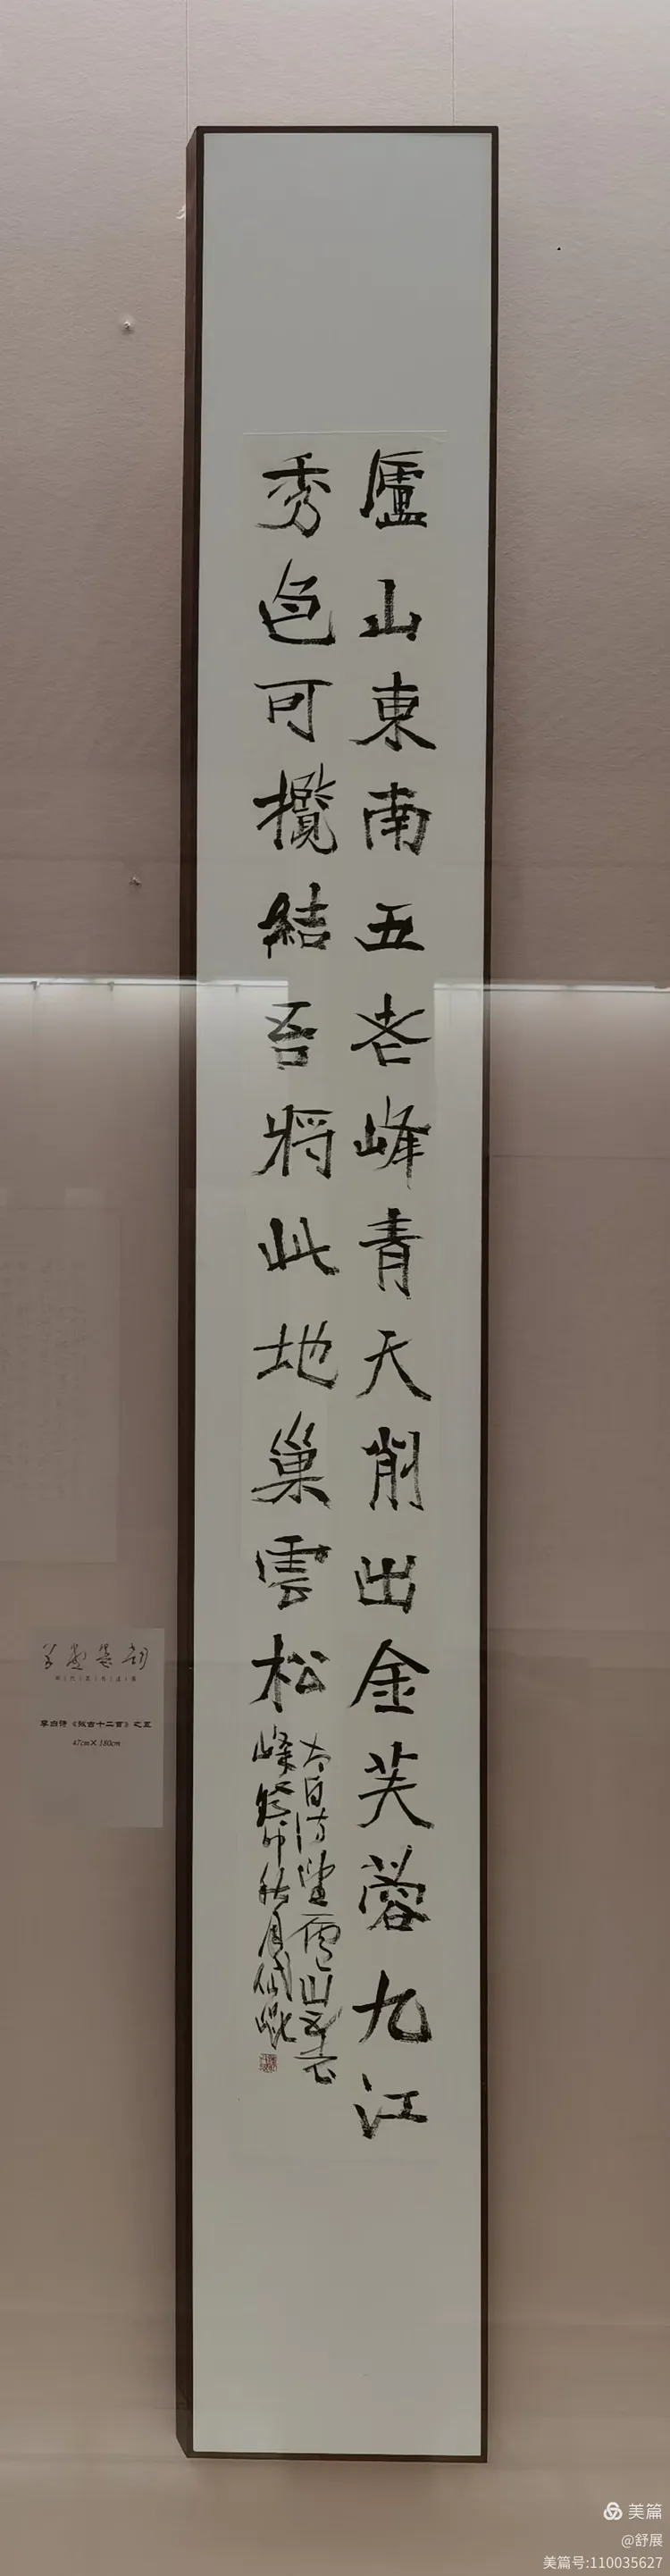 廬山東南五老峰青天削出金芙蓉九江
秀色可攬結吾將此地巢雲松
太白詩望廬山五老
峰
李白诗《拟古十二首》之五
47cm×180cm
美篇
@舒展
美篇号:110035627